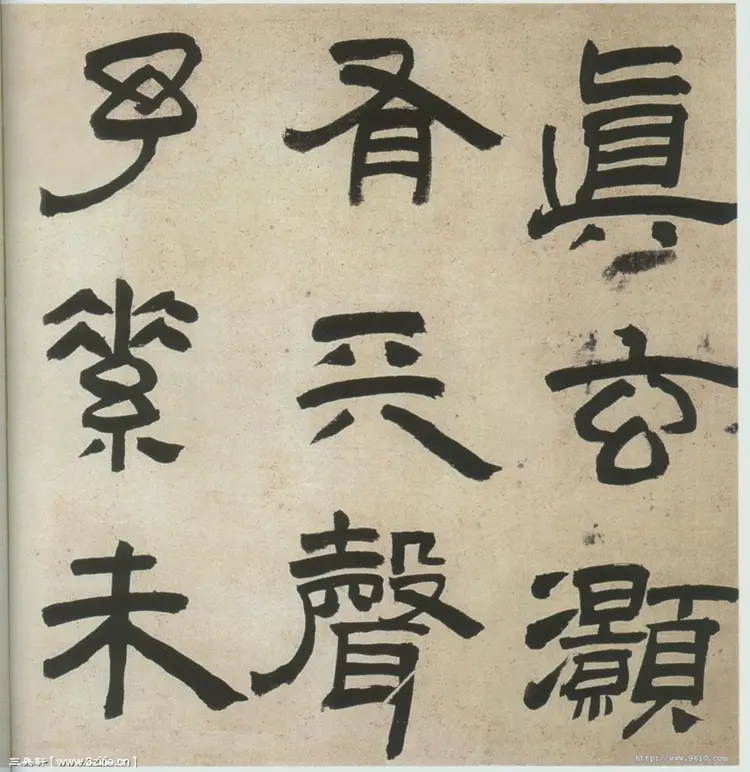 眞玄灝
有天聲
予素未
三癸轩[www.3zitie.cn]
http://www.9610.com